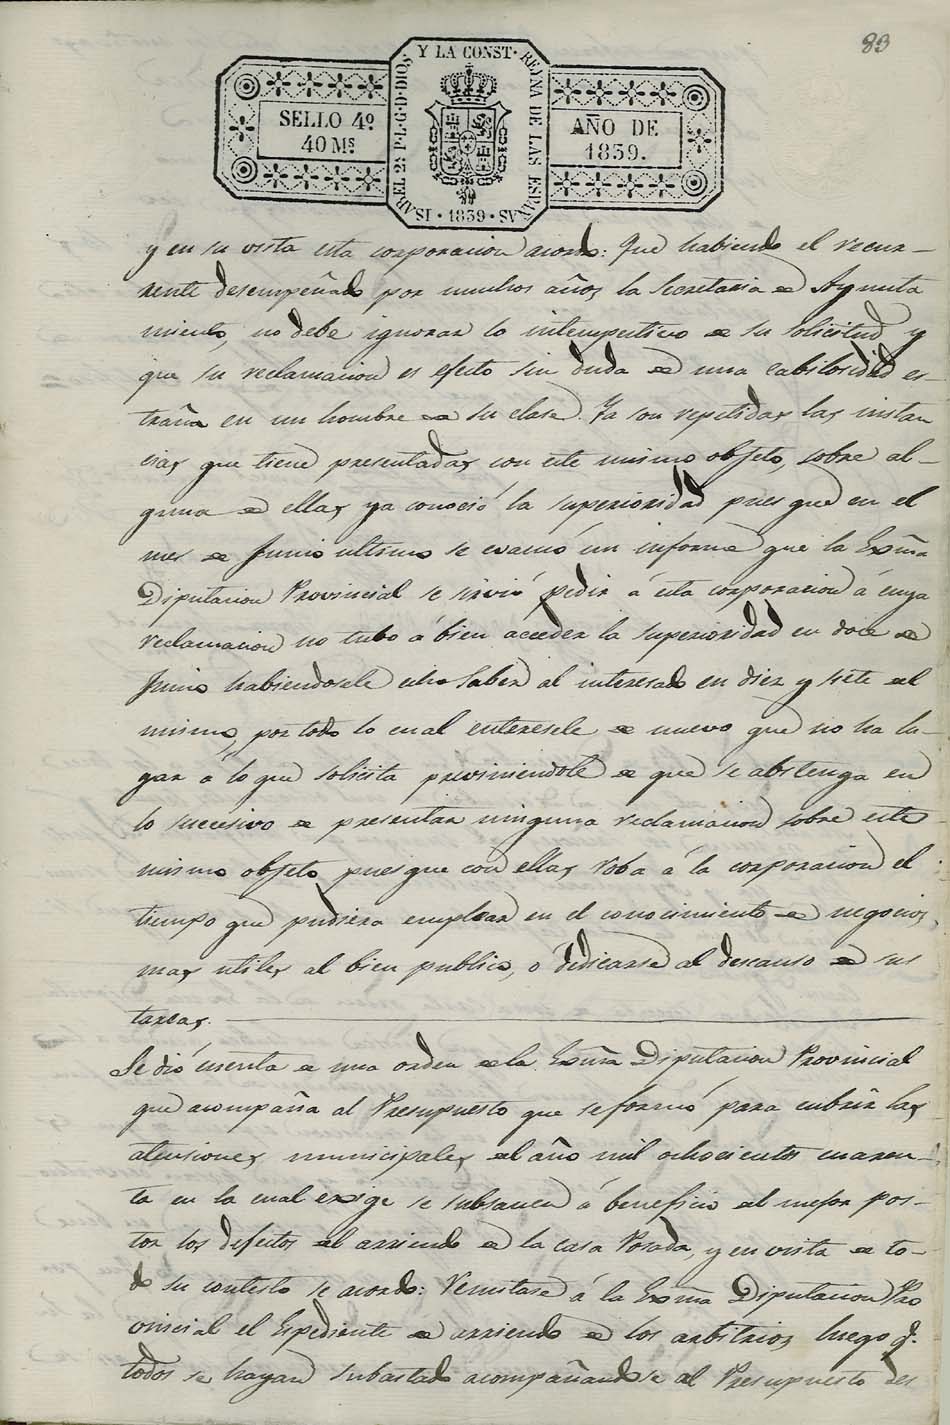 83
SELLO 4º
40 Ms
ISABEL 2ª P·L·G·D·DIOS Y LA CONST· REYNA DE LAS ESPAÑAS · 1839 ·
AÑO DE
1839.
y en su vista esta corporacion acordo: Que habiendo el recur-
rente desempeñado por muchos años la Secretaria de Ayunta
miento, no debe ignorar lo intempestivo de su solicitud y
que su reclamacion es efecto sin duda de una cabilosidad es-
traña en un hombre de su clase. Ya son repetidas las instan
cias que tiene presentadas con este mismo objeto, sobre al-
guna de ellas ya conoció la superioridad pues que en el
mes de Junio ultimo se evacuó un informe que la Exma
Diputacion Provincial se sirvió pedir á esta corporacion á cuya
reclamacion no tubo á bien acceder la superioridad en doce de
Junio habiendosele echo saber al interesado en diez y siete del
mismo, por todo lo cual enteresele de nuevo que no ha lu-
gar á lo que solicita previniendole de que se abstenga en
lo succesivo de presentar ninguna reclamacion sobre este
mismo objeto, pues que con ellas roba á la corporacion el
tiempo que pudiera emplear en el conocimiento de negocios
mas utiles al bien publico, o dedicarse al descanso de sus
tareas.
Se dió cuenta de una orden de la Exma Diputacion Provincial
que acompaña al Presupuesto que se formó para cubrir las
atenciones municipales del año mil ochocientos cuaren-
ta en la cual exige se subsanen á beneficio del mejor pos-
tor los defectos del arriendo de la casa Posada, y en vista de to-
do su contesto se acordo: Remitase á la Exma Diputacion Pro
vincial el Espediente de arriendo de los arbitrios luego q.
todos se hayan subastado acompañandose al Presupuesto des